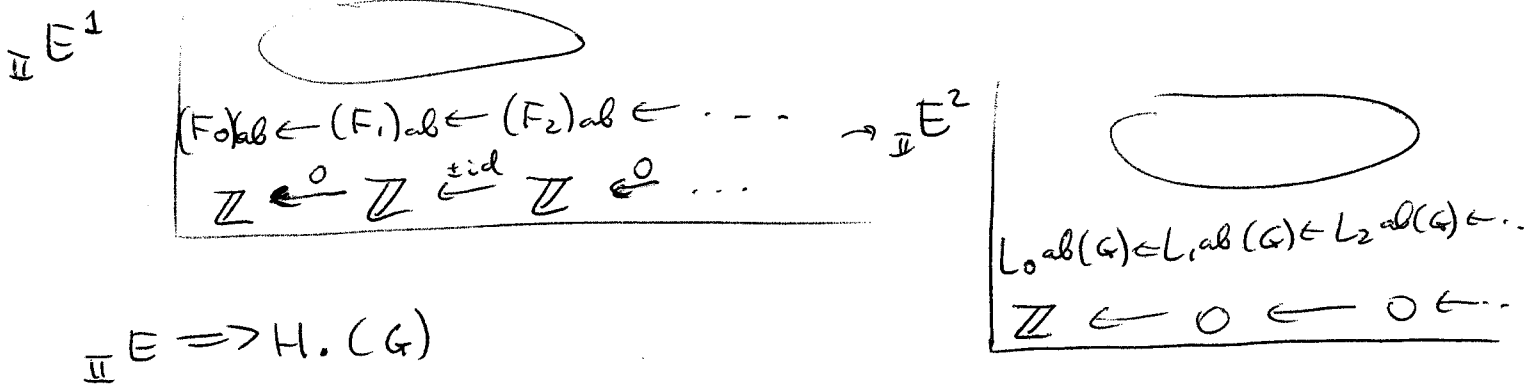 _{II}E^1
(F_0)ab ← (F_1)ab ← (F_2)ab ← · - -
ℤ ←^0 ℤ ←^{±id} ℤ ←^0 ...
→ _{II}E^2
L_0 ab(G) ← L_1 ab(G) ← L_2 ab(G) ← ..
ℤ ← 0 ← 0 ← ...
_{II}E => H.(G)